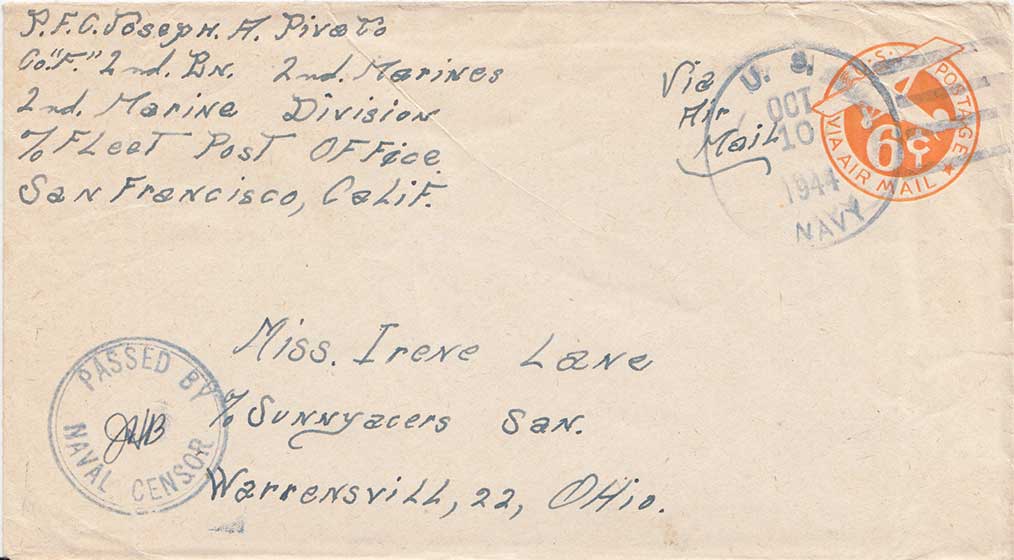 P.F.C. Joseph. A. Pivato
Co. "F." 2nd. Bn. 2nd. Marines
2nd. Marine Division
℅ Fleet Post Office
San Francisco, Calif.
Via
Air
Mail
U. S.
OCT
10
1944
NAVY
U.S. POSTAGE
6¢
VIA AIR MAIL
Miss. Irene Lane
℅ Sunnyacers San.
Warrensvill, 22, Ohio.
PASSED BY
JHB
NAVAL CENSOR